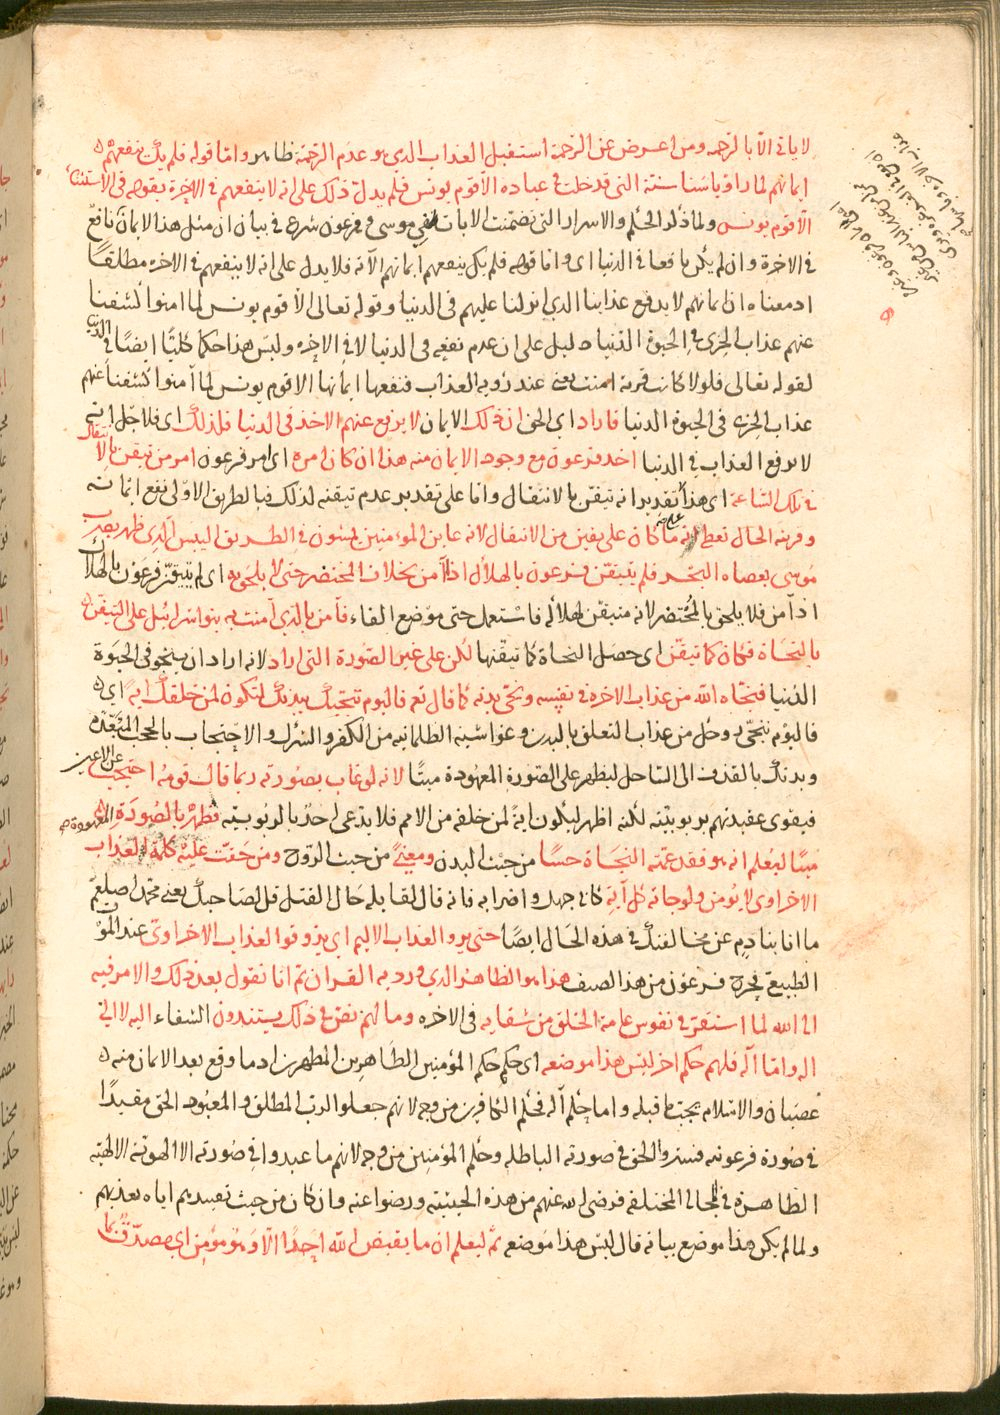 لا ياتى الا بالرحمه ومن اعرض عن الرحمة استقبل العذاب الذى هو عدم الرحمة ظاهر واما قوله فلم يك ينفعهم
ايمانهم لما راوا باسنا سنة الله التى قد خلت فى عباده الا قوم يونس فلم يدل ذلك على انه لا ينفعهم فى الاخرة بقوله فى الاستثناء
الا قوم يونس ولما ذكر الحكم والاسرار التى تضمنت الايات فى موسى وفرعون شرع فى بيان ان مثل هذا الايمان نافع
فى الاخرة وان لم يكن نافعا فى الدنيا اى واما قوله فلم يكن ينفعهم ايمانهم الآية فلا يدل على انه لا ينفعهم فى الاخره مطلقا
اذ معناه ان ايمانهم لا يدفع عذابنا الذى انزلنا عليهم فى الدنيا وقوله تعالى الا قوم يونس لما امنوا كشفنا
عنهم عذاب الخزى فى الحيوة الدنيا دليل على ان عدم نفعه فى الدنيا لا فى الاخره وليس هذا حكما كليا ايضا فى الدنيا
لقوله تعالى فلولا كانت قرية امنت يعنى عند رؤية العذاب فنفعها ايمانها الا قوم يونس لما آمنوا كشفنا عنهم
عذاب الخزى فى الحيوة الدنيا فاراد اى الحق ان ذلك الايمان لا يرفع عنهم الاخذ فى الدنيا فلذلك اى فلاجل انه
لا يرفع العذاب فى الدنيا اخذ فرعون مع وجود الايمان منه هذا ان كان امره اى امر فرعون امر من تيقن بالانتقال
فى تلك الساعة اى هذا تقديرا انه تيقن بالانتقال واما على تقدير عدم تيقنه لذلك فبالطريق الاولى نفع ايمانه
وقرينة الحال تعطى انه ما كان على يقين من الانتقال لانه عاين المؤمنين يمشون فى الطريق اليبس الذى ظهر بضرب
موسى بعصاه البحر فلم يتيقن فرعون بالهلاك اذ آمن بخلاف المحتضر حتى لا يلحق به اى لم يتيقن فرعون بالهلاك
اذ آمن فلا يلحق بالمحتضر لانه متيقن لهلاكه فاستعمل حتى موضع الفاء فآمن بالذى آمنت به بنوا اسرائيل على التيقن
بالنجاة فكان كما تيقن اى حصل النجاة كما تيقنها لكن على غير الصورة التى اراد لانه اراد ان ينجو فى الحيوة
الدنيا فنجاه الله من عذاب الاخرة فى نفسه ونجى بدنه كما قال تع فاليوم ننجيك ببدنك لتكون لمن خلفك اية اى
فاليوم ننجى روحك من عذاب التعلق بالبدن وغواشيه الظلمانيه من الكفر والشرك والاحتجاب بالحجب المبعده
وبدنك بالقذف الى الساحل ليظهر على الصورة المعهودة ميتا لانه لو غاب بصورته ربما قال قومه احتجب عن الاعين
فيقوى عقيدتهم بربوبيته لكنه اظهر ليكون اية لمن خلفه من الامم فلا يدعى احد بالربوبيته فظهر بالصورة المعهودة
ميتا ليعلم انه هو فقد عمته النجاة حسا من حيث البدن ومعنى من حيث الروح ومن حقت عليه كلمة العذاب
الاخراوى لا يؤمن ولو جاءته كل آية كابى جهل واضرابه فانه قال لقاتله حال القتل قل لصاحبك يعنى محمدا صلعم
ما انا بنادم عن مخالفتك فى هذه الحال ايضا حتى يروا العذاب الاليم اى يذوقوا العذاب الاخراوى عند الموت
الطبيعى فخرج فرعون من هذا الصنف هذا هو الظاهر الذى ورد به القران ثم انا نقول بعد ذلك والامر فيه
الى الله لما استقر فى نفوس عامة الخلق من شقايه فى الاخره وما لهم نص فى ذلك يستندون الشقاء اليه لا الى
اله واما آله فلهم حكم اخر ليس هذا موضعه اى حكم حكم المؤمنين الطاهرين المطهرين اذ ما وقع بعد الايمان منه
عصيان والاسلام يجب ما قبله واما حكم آله فحكم الكافرين من وجه لانهم جعلوا الرب المطلق والمعبود الحق مقيدا
فى صورة فرعونيه فستروا الحق فى صورته الباطله وحكم المؤمنين من وجه لانهم ما عبدوا فى صورته الا الهوية الالهية
الظاهرة فى المجالى المختلفه فرضى الله عنهم من هذه الحيثيه ورضوا عنه وان كان من حيث تقييدهم اياه يعذبهم
ولما لم يكن هذا موضع بيانه قال ليس هذا موضعه ثم ليعلم ان ما يقبض الله احدا الا وهو مؤمن اى مصدق بما